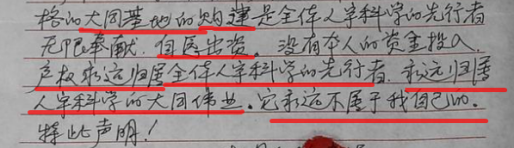 格的大同基地的购建是全体人宇科学的先行者
无限奉献、自愿出资。没有本人的资金投入。
产权永远归属全体人宇科学的先行者、永远归属
人宇科学的大同伟业。它永远不属于我自己的。
特此声明！